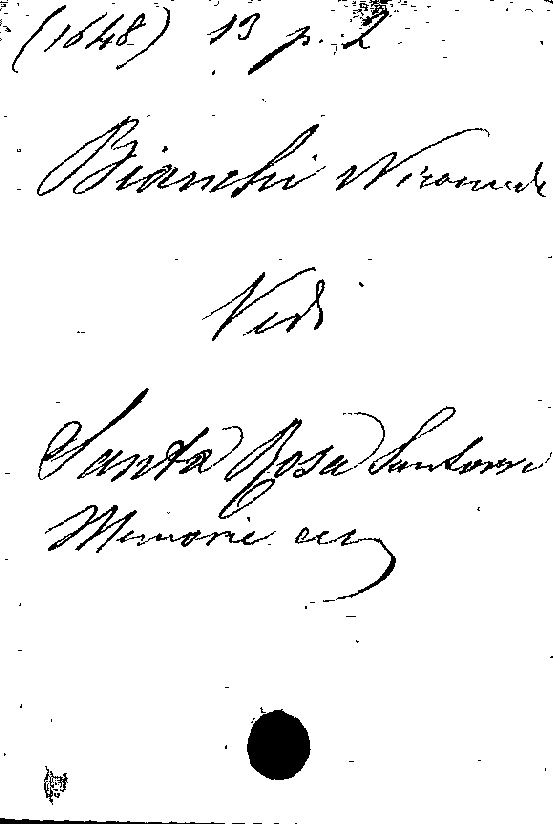 (1648) 13 p. 2
Bianchi Nicomede
Vedi
Santa Rosa Santorre
Memorie ecc